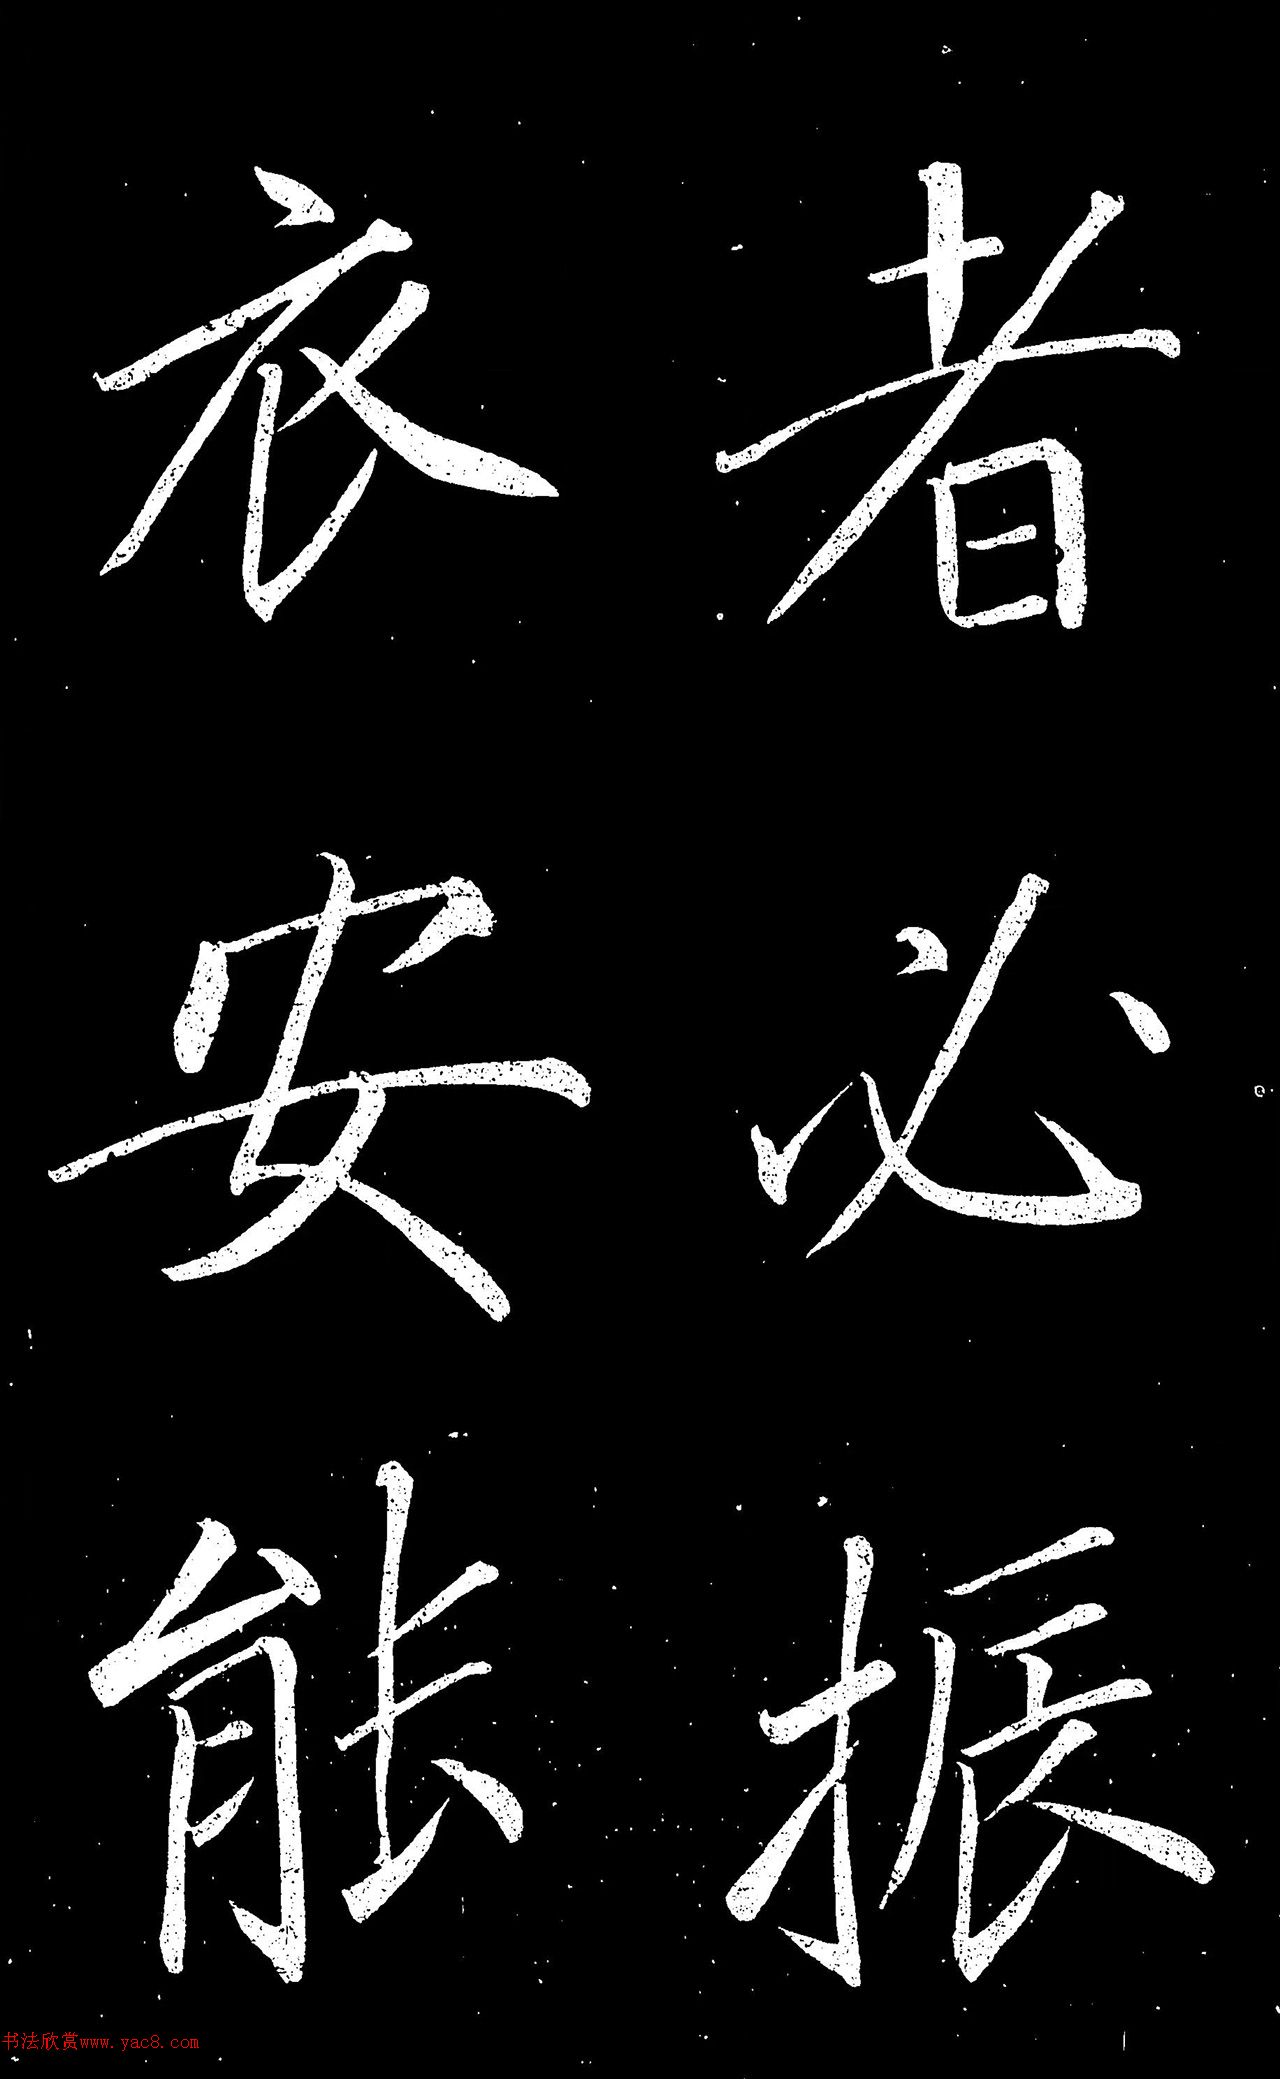 者必振
衣安能
书法欣赏www.yac8.com